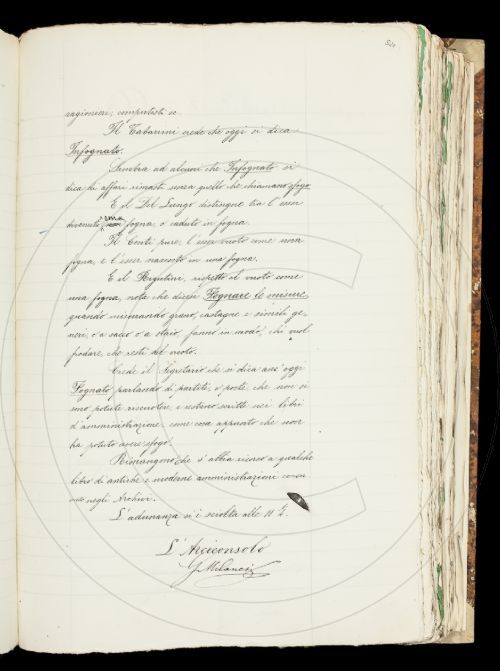 521
ragionieri, computisti ec.
Il Tabarrini crede che oggi si dica
Infognato.
Sembra ad alcuni che Infognato si
dica di affari rimasti senza quello che chiamano sfogo
E il Del Lungo distingue tra l'esser
divenuto una fogna, o caduto in fogna.
Il Conti pure, l'esser vuoto come una
fogna, e l'esser nascosto in una fogna.
E il Rigutini, rispetto al vuoto come
una fogna, nota che dicesi Fognare le misure,
quando misurando grano, castagne e simili ge-
neri, o a sacco o a staio, fanno in modo, chi vuol
frodare, che resti del vuoto.
Crede il Segretario che si dica anc'oggi
Fognato parlando di partite, o poste, che non si
sono potute riscuotere, e restano scritte nei libri
d'amministrazione, come cosa appunto che non
ha potuto avere sfogo.
Rimangono che s'abbia ricorso a qualche
libro di antiche e moderne amministrazioni conser-
vato negli Archivi.
L'adunanza si è sciolta alle 11 ½.
L'Arciconsolo
G. Milanesi